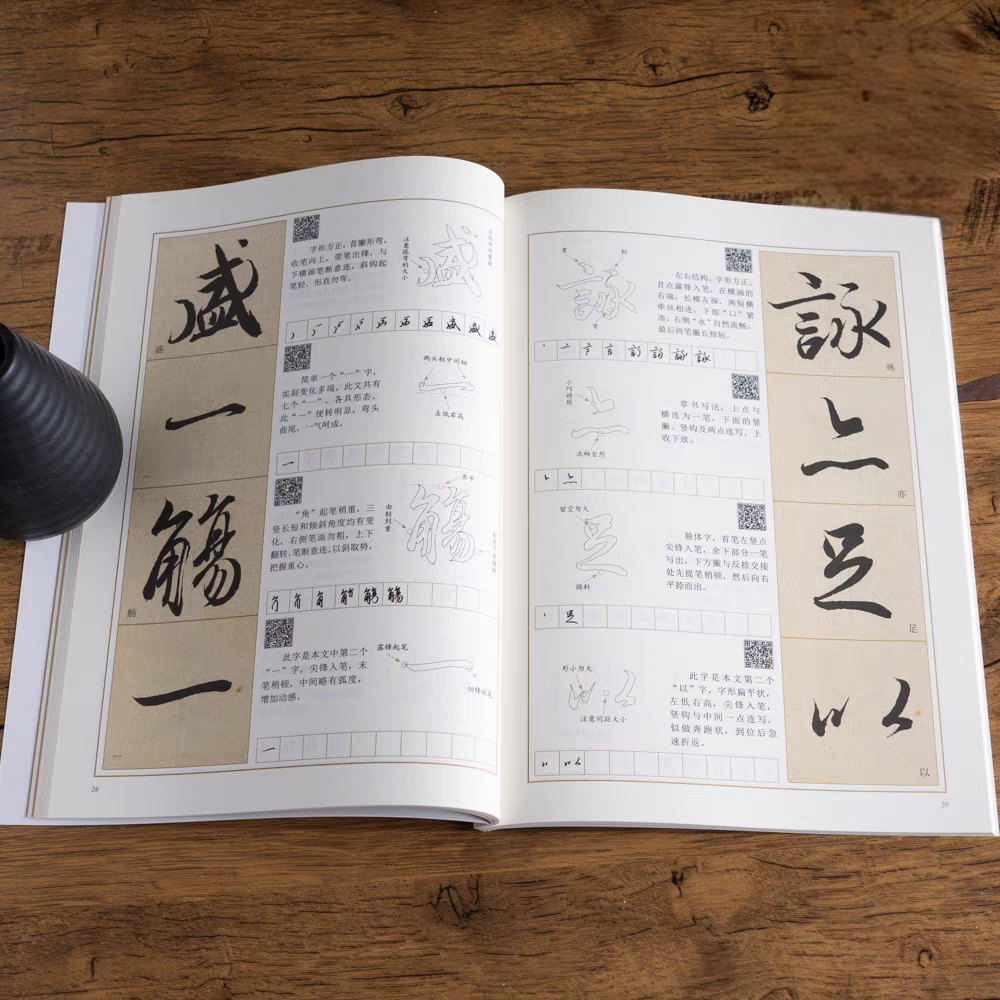 盛
字形方正，首撇形弯，
收笔向上，带笔出锋，与
下横画笔断意连，斜钩起
笔轻，形直勿弯。
注意弧度的大小
盛
一
简单一个“一”字，
实则变化多端，此文共有
七个“一”，各具形态。
此“一”使转明显，弯头
曲尾，一气呵成。
两头粗中间细
左低右高
一
一
觞
“角”起笔稍重，三
竖长短和倾斜角度均有变
化，右侧笔画勿粗，上下
翻转，笔断意连，以斜取势，
把握重心。
齐平
由轻到重
觞
一
此字是本文中第二个
“一”字，尖锋入笔，末
笔稍顿，中间略有弧度，
增加动感。
露锋起笔
回锋收笔
一
一
28
詠
重
轻
弯
左右结构，字形方正，
首点露锋入笔，在横画的
右端，长横左探，两短横
牵丝相连，下部“口”紧
凑。右侧“永”自然流畅，
最后两笔撇长捺短。
咏
亦
小巧精致
流畅自然
草书写法，上点与
横连为一笔，下面的竖
撇、竖钩及两点连写，上
收下放。
亦
足
留空勿大
倾斜
独体字，首笔左竖点
尖锋入笔，余下部分一笔
写出，下方撇与反捺交接
处先提笔稍顿，然后向右
平捺而出。
足
以
形小勿大
注意间距大小
此字是本文第二个
“以”字，字形扁平状，
左低右高，尖锋入笔，
竖钩与中间一点连写，
似做奔跑状，到位后急
速折返。
以
29